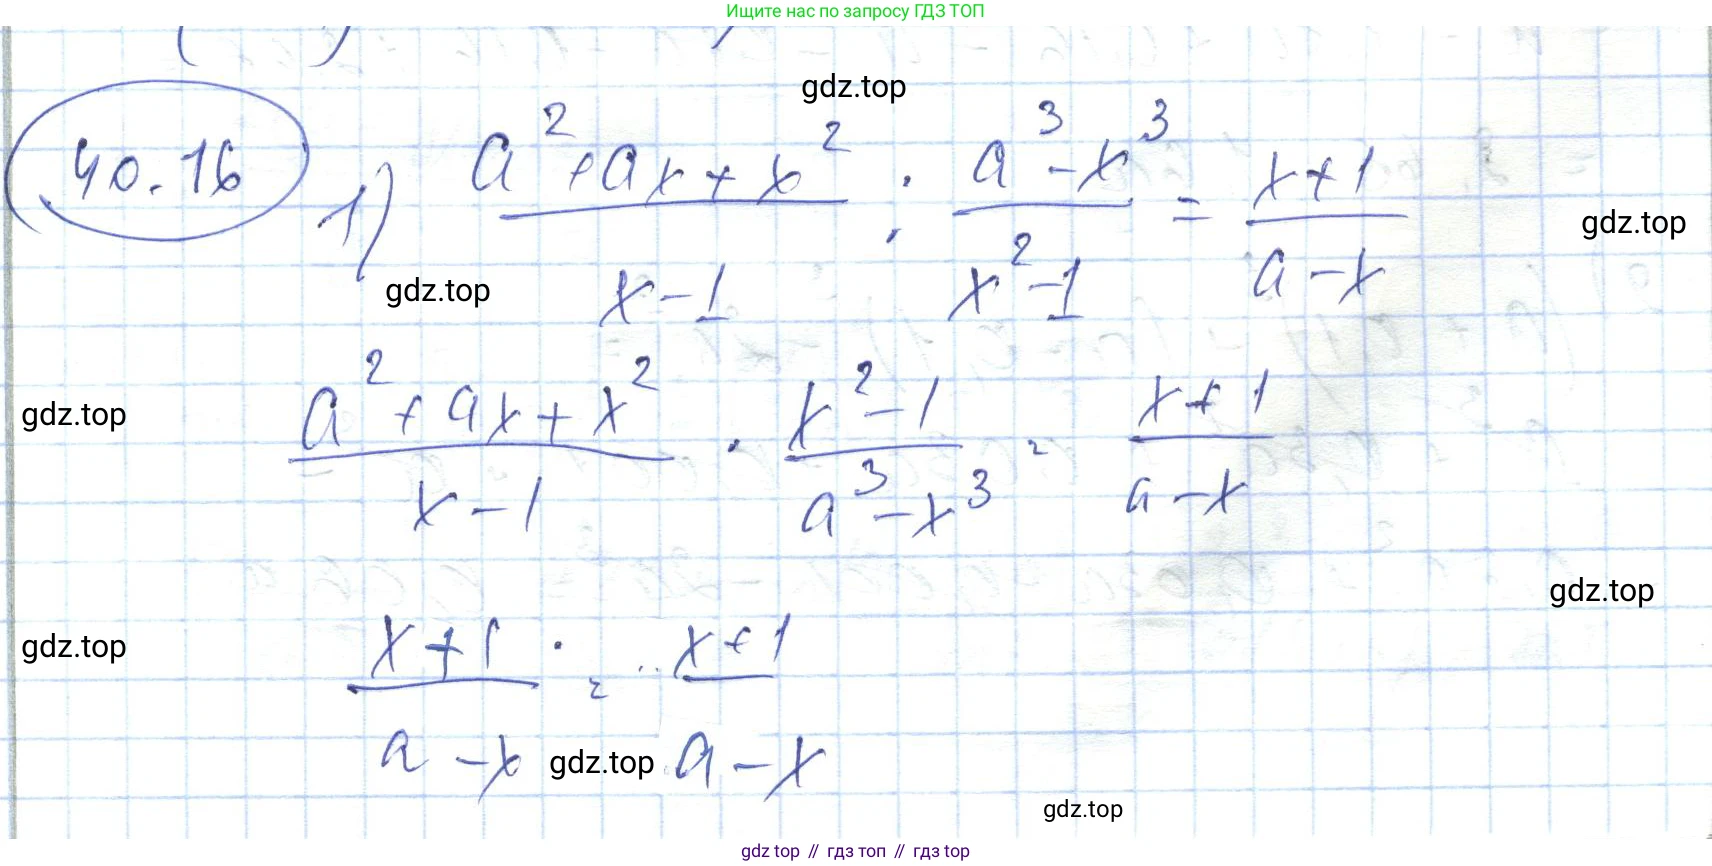 Ищите нас по запросу ГДЗ ТОП
gdz.top
40.16 1) (a²+ax+x²)/(x-1) : (a³-x³)/(x²-1) = (x+1)/(a-x)
gdz.top
gdz.top
gdz.top
(a²+ax+x²)/(x-1) · (x²-1)/(a³-x³) = (x+1)/(a-x)
gdz.top
gdz.top
(x+1)/(a-x) = (x+1)/(a-x)
gdz.top
gdz.top
gdz.top // гдз топ // гдз.top